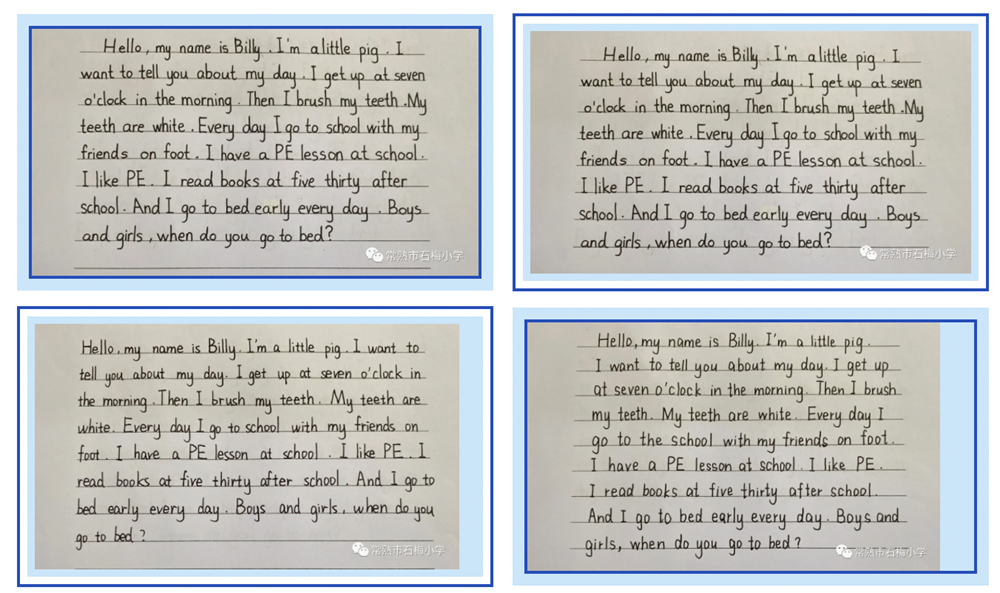 Hello, my name is Billy. I'm a little pig. I
want to tell you about my day. I get up at seven
o'clock in the morning. Then I brush my teeth. My
teeth are white. Every day I go to school with my
friends on foot. I have a PE lesson at school.
I like PE. I read books at five thirty after
school. And I go to bed early every day. Boys
and girls, when do you go to bed?
常熟市石梅小学
Hello, my name is Billy. I'm a little pig. I
want to tell you about my day. I get up at seven
o'clock in the morning. Then I brush my teeth. My
teeth are white. Every day I go to school with my
friends on foot. I have a PE lesson at school.
I like PE. I read books at five thirty after
school. And I go to bed early every day. Boys
and girls, when do you go to bed?
常熟市石梅小学
Hello, my name is Billy. I'm a little pig. I want to
tell you about my day. I get up at seven o'clock in
the morning. Then I brush my teeth. My teeth are
white. Every day I go to school with my friends on
foot. I have a PE lesson at school. I like PE. I
read books at five thirty after school. And I go to
bed early every day. Boys and girls, when do you
go to bed?
常熟市石梅小学
Hello, my name is Billy. I'm a little pig.
I want to tell you about my day. I get up
at seven o'clock in the morning. Then I brush
my teeth. My teeth are white. Every day I
go to the school with my friends on foot.
I have a PE lesson at school. I like PE.
I read books at five thirty after school.
And I go to bed early every day. Boys and
girls, when do you go to bed?
常熟市石梅小学